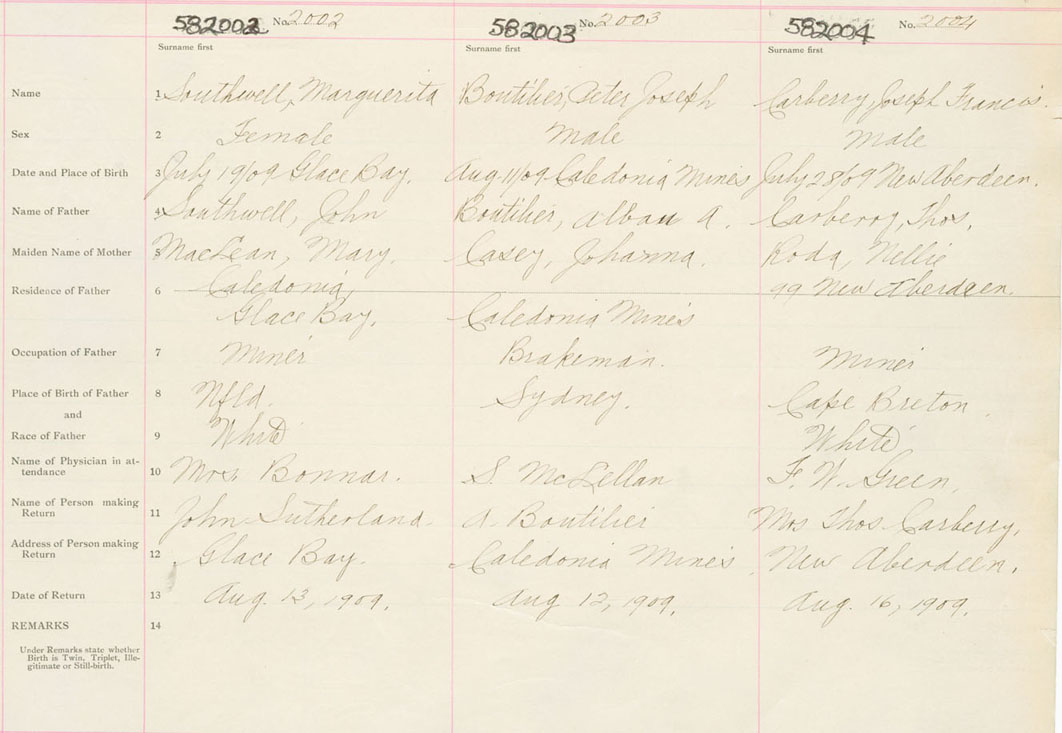 582002 No. 2002 582003 No. 2003 582004 No. 2004
Surname first Surname first Surname first
Name 1 Southwell, Marguerita Boutilier, Peter Joseph Carberry, Joseph Francis.
Sex 2 Female Male Male
Date and Place of Birth 3 July 19/09 Glace Bay. Aug 11/09 Caledonia Mines July 28/09 New Aberdeen.
Name of Father 4 Southwell, John Boutilier, Alban A. Carberry, Thos.
Maiden Name of Mother 5 MacLean, Mary. Casey, Johanna. Roda, Nellie
Residence of Father 6 Caledonia, 99 New Aberdeen.
Glace Bay. Caledonia Mines
Occupation of Father 7 Miner Brakeman. Miner
Place of Birth of Father 8 Nfld. Sydney. Cape Breton.
and
Race of Father 9 White White
Name of Physician in at-
tendance 10 Mrs. Bonnar. S. McLellan F. W. Green.
Name of Person making
Return 11 John Sutherland. A. Boutilier Mrs Thos. Carberry.
Address of Person making
Return 12 Glace Bay. Caledonia Mines New Aberdeen.
Date of Return 13 Aug. 13, 1909. Aug 12, 1909. Aug. 16, 1909.
REMARKS 14
Under Remarks state whether
Birth is Twin, Triplet, Ille-
gitimate or Still-birth.